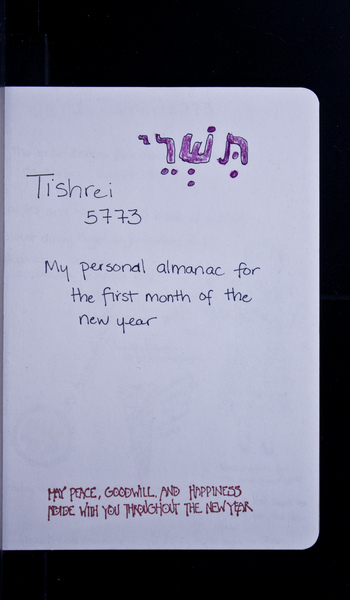 תִּשְׁרֵי
Tishrei
5773
My personal almanac for
the first month of the
new year
MAY PEACE, GOODWILL, AND HAPPINESS
ABIDE WITH YOU THROUGHOUT THE NEW YEAR